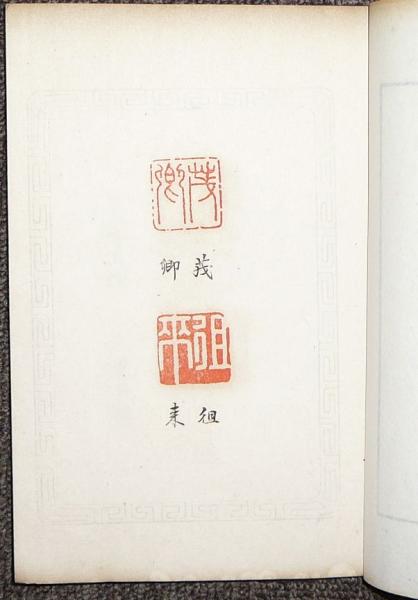 茂卿
茂卿
徂來
徂来